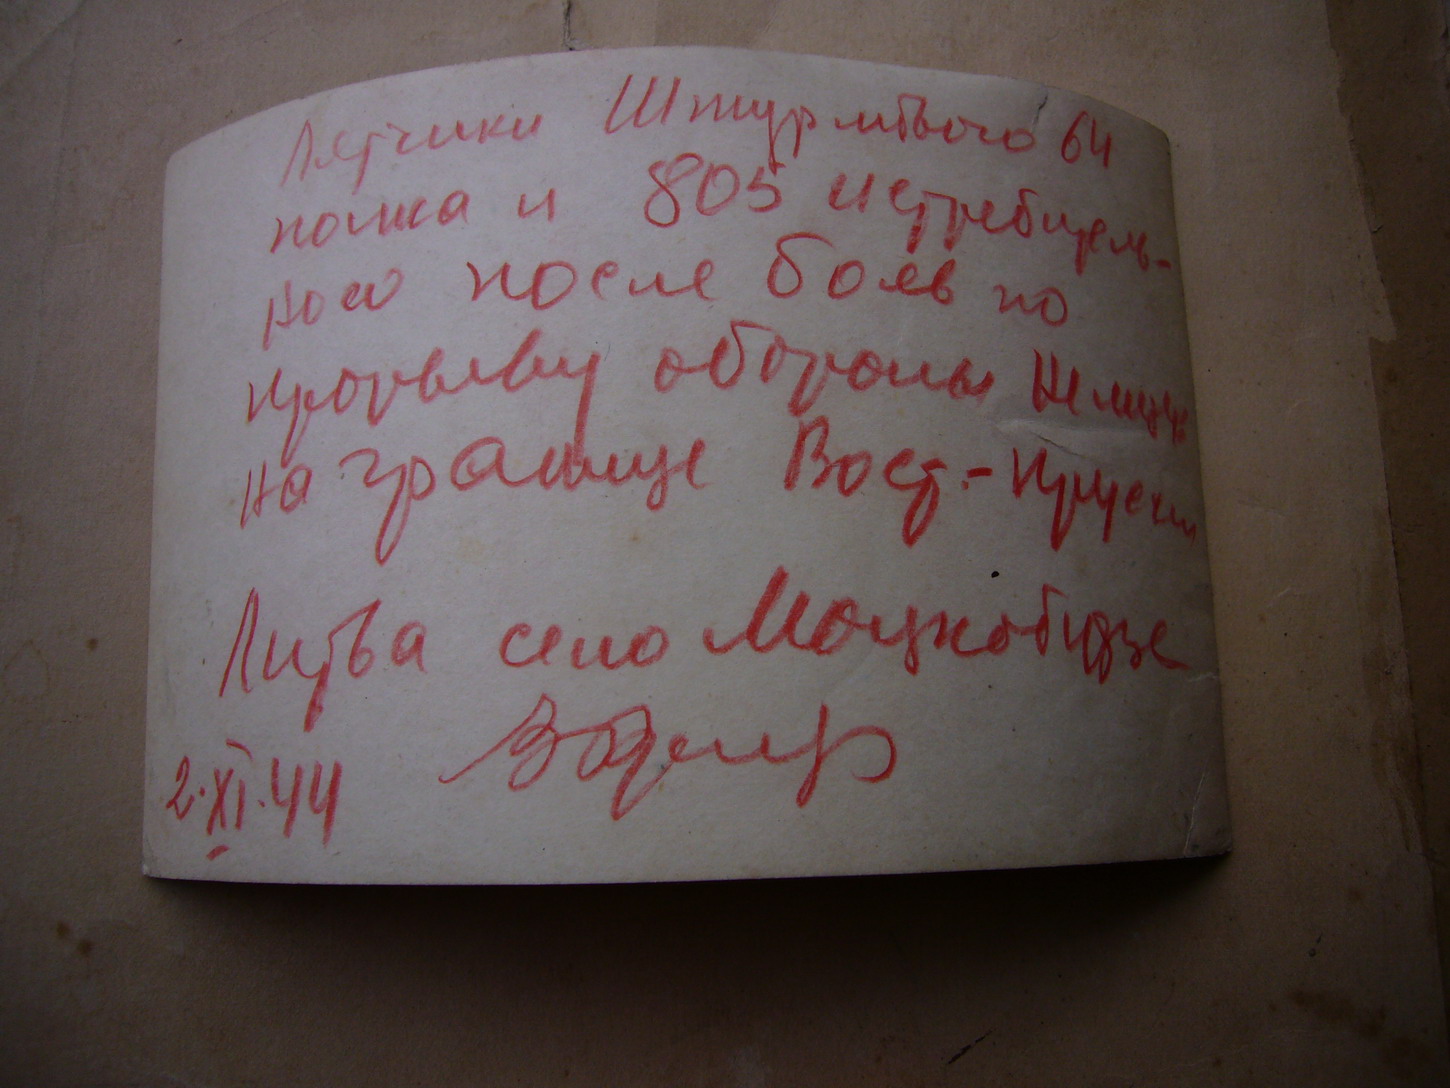 Лятчики Штурмовово 64
полка и 805 истребитель-
ного после боев по
прорыву обороны Немцы
на границе Вост-Прусии
Литва село Моцкобудзе
2.XI.44